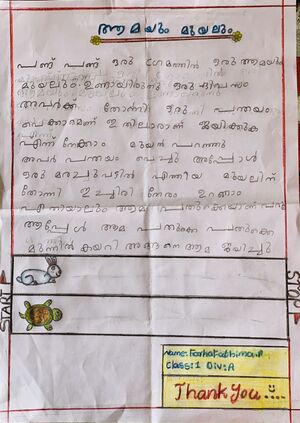 ആമയും മുയലും
പണ്ട് പണ്ട് ഒരു ഗ്രമത്തിൽ ഒരു ആമയും
മുയലും ഉണ്ടായിരുന്നു ഒരു ദിവസം
അവർക്ക് തോന്നി ഒരു പന്തയം
വെക്കാമെന്ന് ഇതിലാരാണ് ജയിക്കുക
എന്ന് നേക്കാം മുയൽ പറഞ്ഞു
അവർ പന്തയം വെച്ചു അപ്പോൾ
ഒരു മരച്ചുവട്ടിൽ എത്തിയ മുയലിന്
തോന്നി ഇച്ചിരി നേരം ഉറങ്ങാം
എന്തിയാലും ആമ പതുക്കെയാണ് വരൂ
ആപ്പേൾ ആമ പതുക്കെ പതുക്കെ
മുന്നിൽ കയറി അങ്ങനെ ആമ ജയിച്ചു
START
STOP
Name: Farha Fathima.P
Class: 1 Div: A
Thank You....